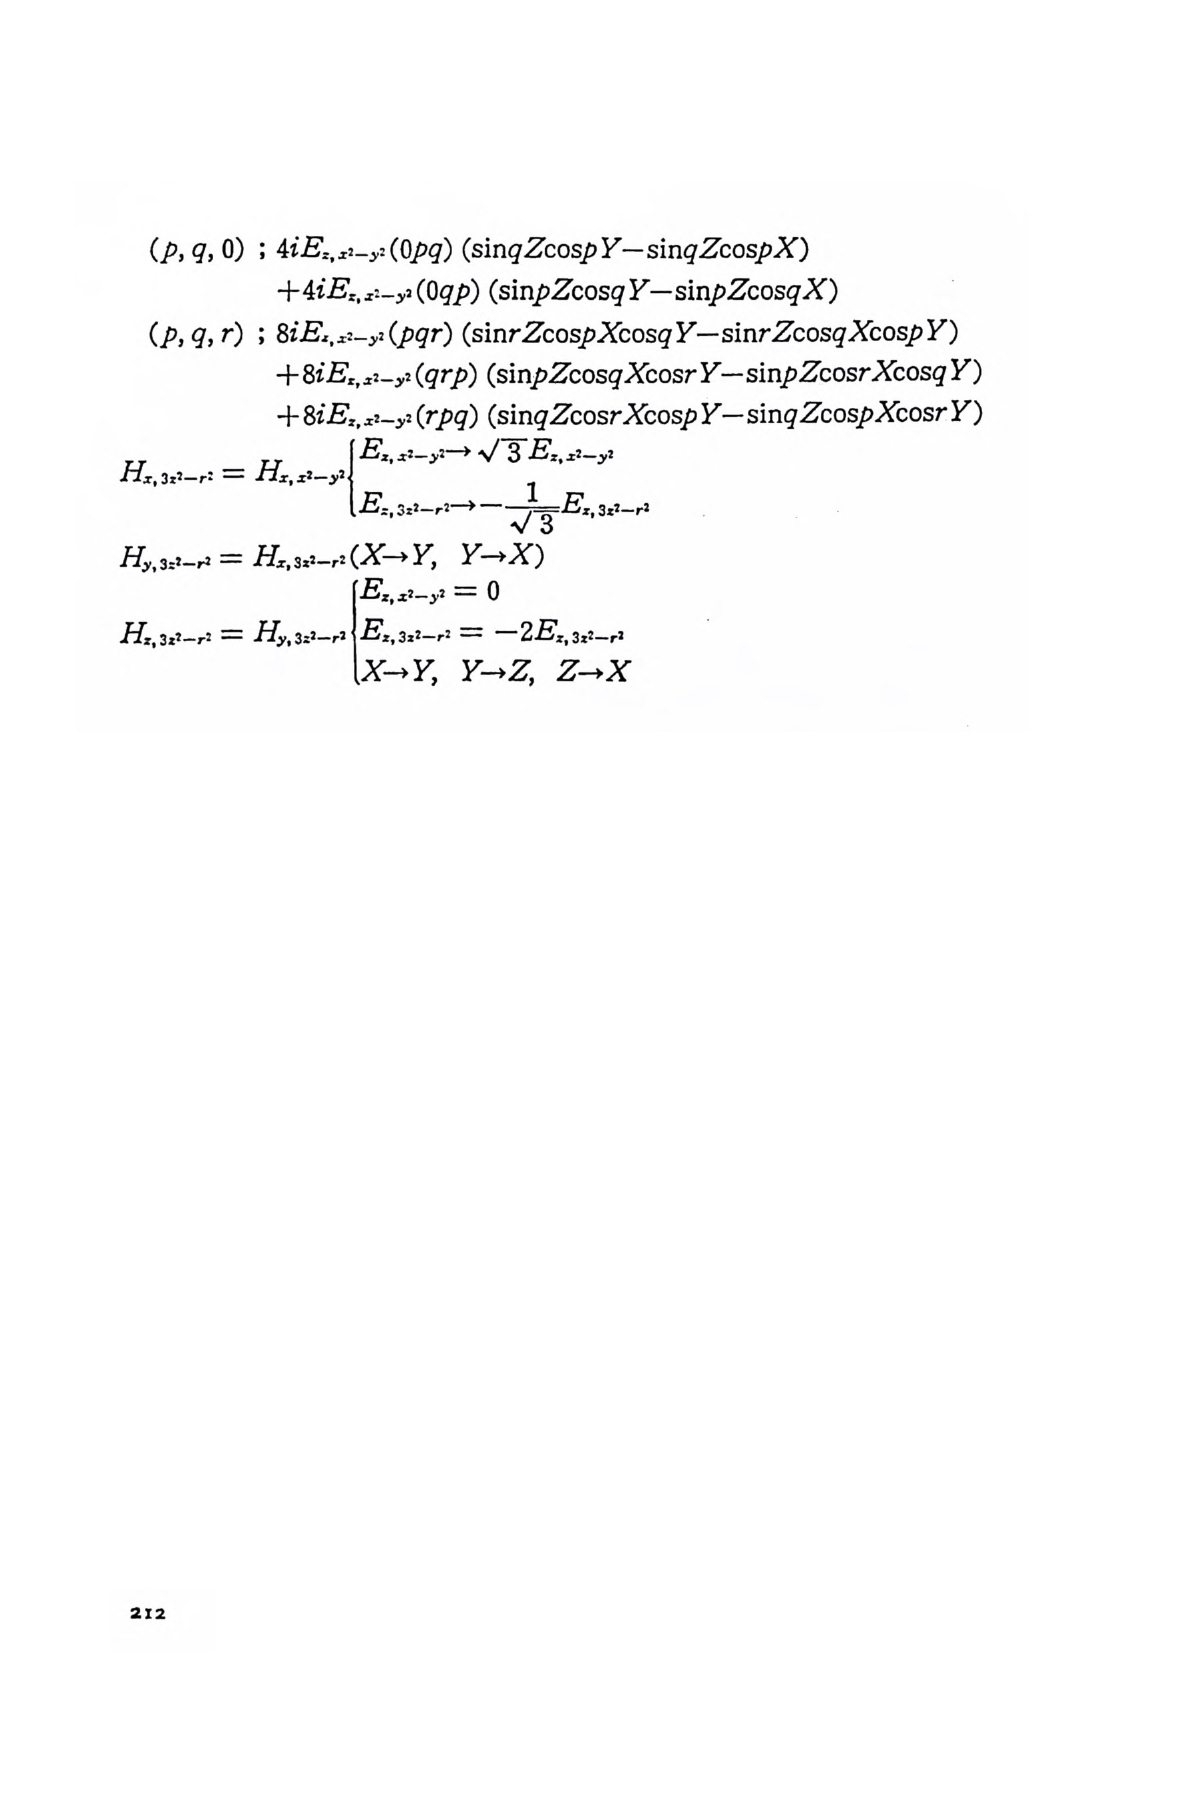 (p, q, 0) ; 4iE_{z, x²−y²}(0pq) (sinqZcospY−sinqZcospX)
+4iE_{z, x²−y²}(0qp) (sinpZcosqY−sinpZcosqX)
(p, q, r) ; 8iE_{z, x²−y²}(pqr) (sinrZcospXcosqY−sinrZcosqXcospY)
+8iE_{z, x²−y²}(qrp) (sinpZcosqXcosrY−sinpZcosrXcosqY)
+8iE_{z, x²−y²}(rpq) (sinqZcosrXcospY−sinqZcospXcosrY)
H_{x, 3z²−r²} = H_{x, x²−y²} { E_{z, x²−y²}→√3 E_{z, x²−y²}
E_{z, 3z²−r²}→−1/√3 E_{z, 3z²−r²}
H_{y, 3z²−r²} = H_{x, 3z²−r²}(X→Y, Y→X)
H_{z, 3z²−r²} = H_{y, 3z²−r²} { E_{z, x²−y²} = 0
E_{z, 3z²−r²} = −2E_{z, 3z²−r²}
X→Y, Y→Z, Z→X
212